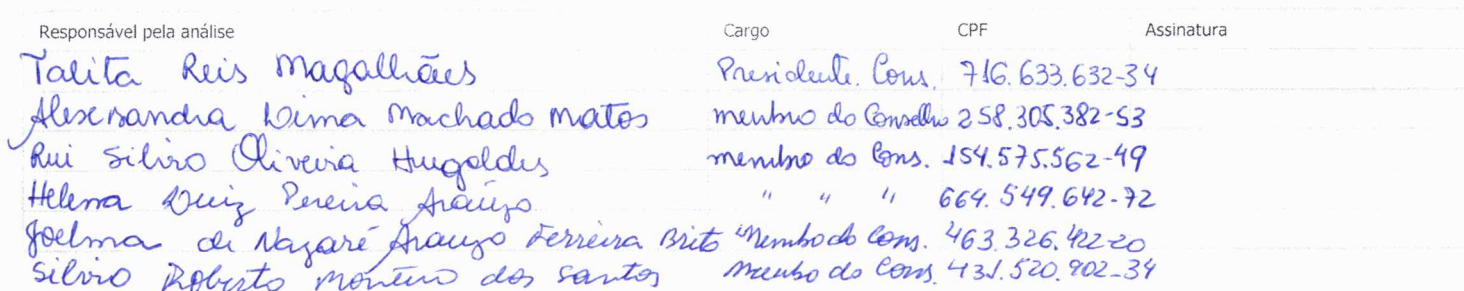 Responsável pela análise Cargo CPF Assinatura
Talita Reis Magalhães Presidente. Cons. 716.633.632-34
Alexsandra Lima Machado Matos membro do Conselho 258.305.382-53
Rui Silvio Oliveira Hugoldes membro do Cons. 154.575.562-49
Helena Luiz Pereira Araújo " " " 664.549.642-72
Joelma de Nazaré Araujo Ferreira Brito Membo do Cons. 463.326.422-20
Silvio Roberto Monteiro dos Santos Membo do Cons. 431.520.902-34